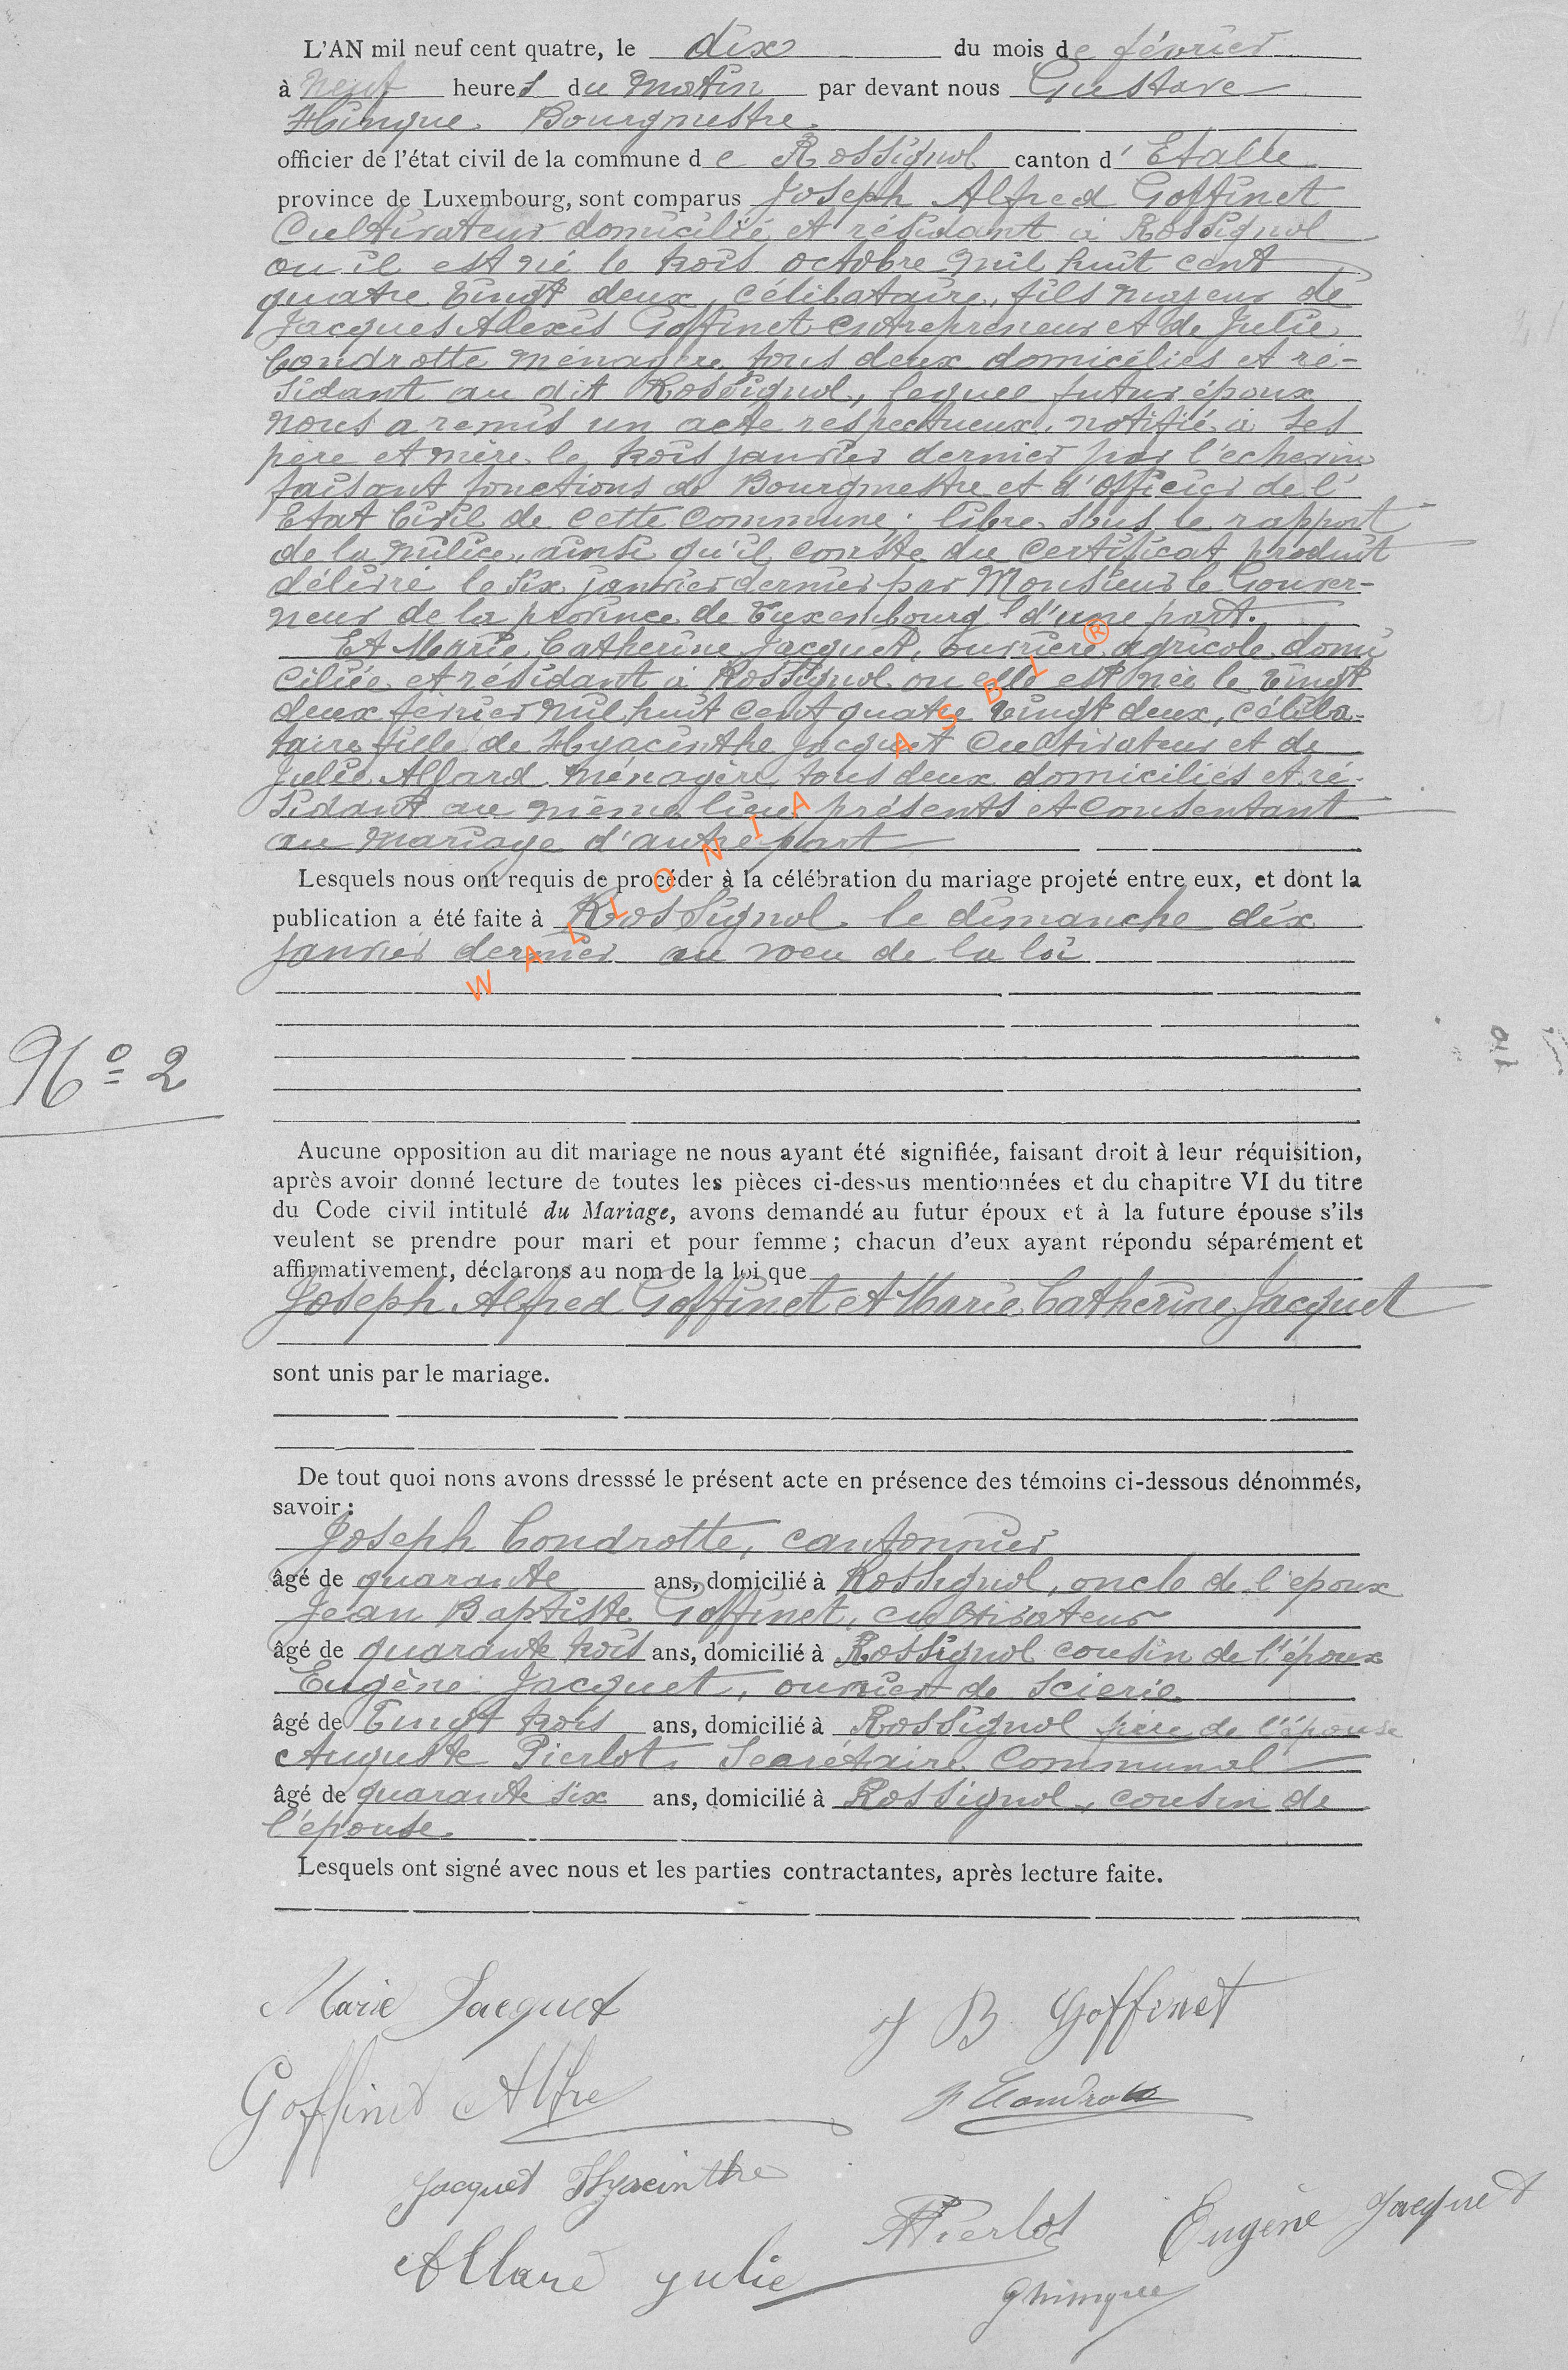 L'AN mil neuf cent quatre, le dix du mois de février
à neuf heures du matin par devant nous Gustave
Hinque, Bourgmestre,
officier de l'état civil de la commune de Rossignol canton d'Etalle
province de Luxembourg, sont comparus Joseph Alfred Goffinet
Cultivateur domicilié et résidant à Rossignol
ou il est né le trois octobre mil huit cent
quatre vingt deux, célibataire, fils majeur de
Jacques Alexis Goffinet entrepreneur et de Julie
Condrotte ménagère tous deux domiciliés et ré-
sidant au dit Rossignol, lequel futur époux
nous a remis un acte respectueux, notifié à ses
père et mère le trois janvier dernier par l'échevin
faisant fonctions de Bourgmestre et d'officier de l'
Etat Civil de cette commune; libre sous le rapport
de la milice, ainsi qu'il conste du certificat produit
délivré le six janvier dernier par Monsieur le Gouver-
neur de la province de Luxembourg d'une part.
Et Marie Catherine Jacquet, ouvrière agricole domi
ciliée et résidant à Rossignol ou elle est née le vingt
deux février mil huit cent quatre vingt deux, céliba-
taire fille de Hyacinthe Jacquet Cultivateur et de
Julie Allard ménagère tous deux domiciliés et ré-
sidant au même lieu présents et consentant
au mariage d'autre part
WALLONIA ASBL ®
Lesquels nous ont requis de procéder à la célébration du mariage projeté entre eux, et dont la
publication a été faite à Rossignol le dimanche dix
janvier dernier au voeu de la loi
No 2
Aucune opposition au dit mariage ne nous ayant été signifiée, faisant droit à leur réquisition,
après avoir donné lecture de toutes les pièces ci-dessus mentionnées et du chapitre VI du titre
du Code civil intitulé du Mariage, avons demandé au futur époux et à la future épouse s'ils
veulent se prendre pour mari et pour femme ; chacun d'eux ayant répondu séparément et
affirmativement, déclarons au nom de la loi que
Joseph Alfred Goffinet et Marie Catherine Jacquet
sont unis par le mariage.
De tout quoi nons avons dresssé le présent acte en présence des témoins ci-dessous dénommés,
savoir :
Joseph Condrotte, cantonnier
âgé de quarante ans, domicilié à Rossignol, oncle de l'époux
Jean Baptiste Goffinet, cultivateur
âgé de quarante trois ans, domicilié à Rossignol cousin de l'époux
Eugène Jacquet, ouvrier de scierie
âgé de vingt trois ans, domicilié à Rossignol frère de l'épouse
Auguste Pierlot, Secrétaire Communal
âgé de quarante six ans, domicilié à Rossignol, cousin de
l'épouse.
Lesquels ont signé avec nous et les parties contractantes, après lecture faite.
Marie Jacquet
J B Goffinet
Goffinet Alfre
J Condrotte
Jacquet Hyacinthe
APierlot
Eugène Jacquet
Allard julie
Ghinque